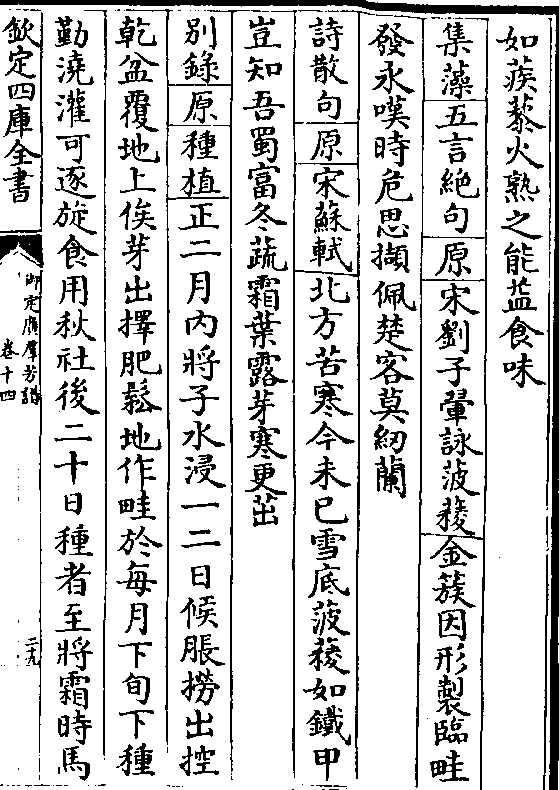 如蒺藜火熟之能益食味
集藻五言絶句原宋劉子翬詠菠薐金簇因形製臨畦
發永嘆時危思擷佩楚客莫紉蘭
詩散句原宋蘇軾北方苦寒今未已雪底菠薐如鐵甲
豈知吾蜀富冬蔬霜葉露芽寒更茁
别錄原種植正二月内將子水浸一二日候脹撈出控
乾盆覆地上俟芽出擇肥鬆地作畦於每月下旬下種
勤澆灌可逐旋食用秋社後二十日種者至將霜時馬
欽定四庫全書
御定廣羣芳譜
卷十四
二十九